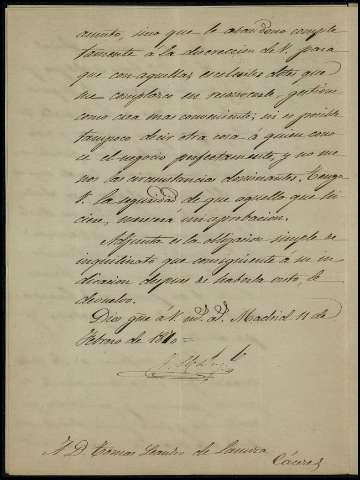 asunto, sino que lo abandono comple
tamente á la discrecion de V. para
que con aquellas excelentes dotes que
me complazco en reconocerle, gestione
como crea mas conveniente; ni es posible
tampoco decir otra cosa á quien cono
ce el negocio perfectamente, y no me
nos las circunstancias dominantes. Tenga
V. la seguridad de que aquello que hi
ciere, merecerá mi aprobacion.
Adjunta es la obligacion simple de
inquilinato que consiguiente á su in
dicacion despues de haberla visto, le
devuelvo.
Dios gue á V. ms. as. Madrid 11 de
Febrero de 1870=
S. D. Tomas Santos de
Cáceres